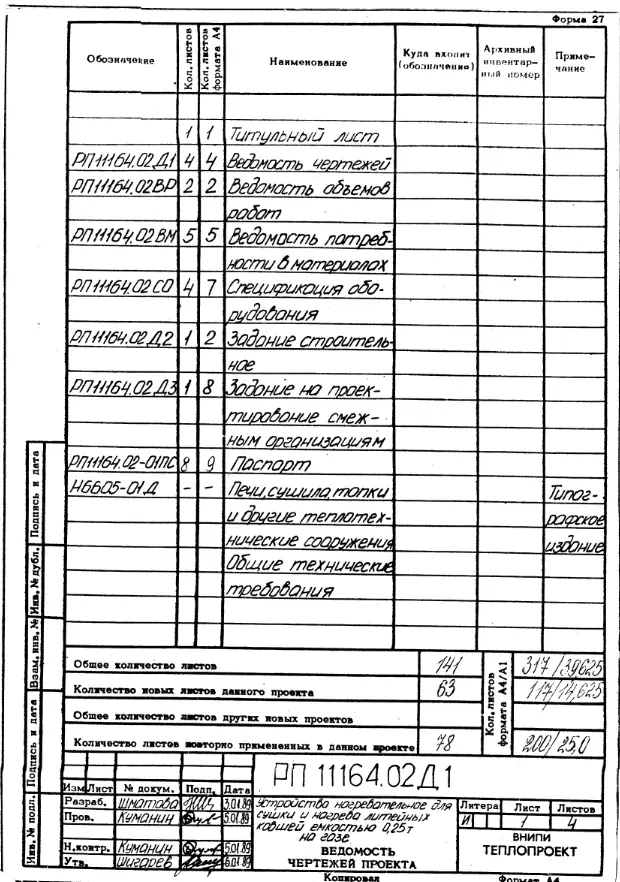 Форма 27
Обозначение
Кол. листов
Кол. листов формата А4
Наименование
Куда входит (обозначение)
Архивный инвентарный номер
Примечание
1 1 Титульный лист
РП11164.02Д1 4 4 Ведомость чертежей
РП11164.02ВР 2 2 Ведомость объемов
работ
РП11164.02ВМ 5 5 Ведомость потреб-
ности в материалах
РП11164.02СО 4 7 Спецификация обо-
рудования
РП11164.02Д2 1 2 Задание строитель-
ное
РП11164.02Д3 1 8 Задание на проек-
тирование смеж-
ным организациям
РП11164.02-01ПС 8 9 Паспорт
Н6605-01Д - - Печи, сушила, топки Типог-
и другие теплотех- рафское
нические сооружения издание
Общие технические
требования
Общее количество листов 141
Количество новых листов данного проекта 63
Общее количество листов других новых проектов
Количество листов повторно примененных в данном проекте 78
Кол. листов формата А4/А1
317/39,625
117/14,625
200/25,0
РП 11164.02Д1
Изм Лист № докум. Подп. Дата
Разраб. Шматова 3.01.89
Пров. Куманин 5.01.89
Н.контр. Куманин 5.01.89
Утв. Шигарев 6.01.89
Устройство нагревательное для
сушки и нагрева литейных
ковшей емкостью 0,25т
на газе
ВЕДОМОСТЬ
ЧЕРТЕЖЕЙ ПРОЕКТА
Литера Лист Листов
И 1 4
ВНИПИ
ТЕПЛОПРОЕКТ
Копировал
Формат А4
Подпись и дата
Инв. № дубл.
Взам. инв. №
Подпись и дата
Инв. № подл.